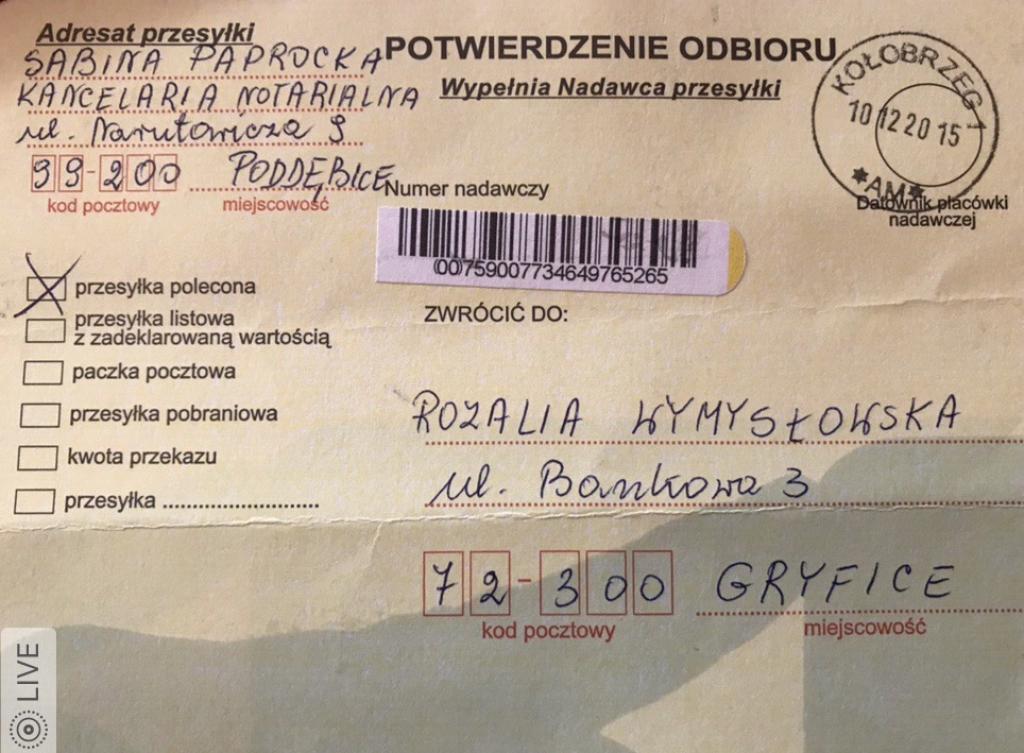 Adresat przesyłki
SABINA PAPROCKA
KANCELARIA NOTARIALNA
ul. Narutowicza 9
99-200 PODDĘBICE
kod pocztowy miejscowość
POTWIERDZENIE ODBIORU
Wypełnia Nadawca przesyłki
KOŁOBRZEG 1
10 12 20 15
*AM*
Datownik placówki
nadawczej
Numer nadawczy
(00)759007734649765265
przesyłka polecona
przesyłka listowa
z zadeklarowaną wartością
paczka pocztowa
przesyłka pobraniowa
kwota przekazu
przesyłka ........................
ZWRÓCIĆ DO:
ROZALIA WYMYSŁOWSKA
ul. Bankowa 3
72-300 GRYFICE
kod pocztowy miejscowość
LIVE